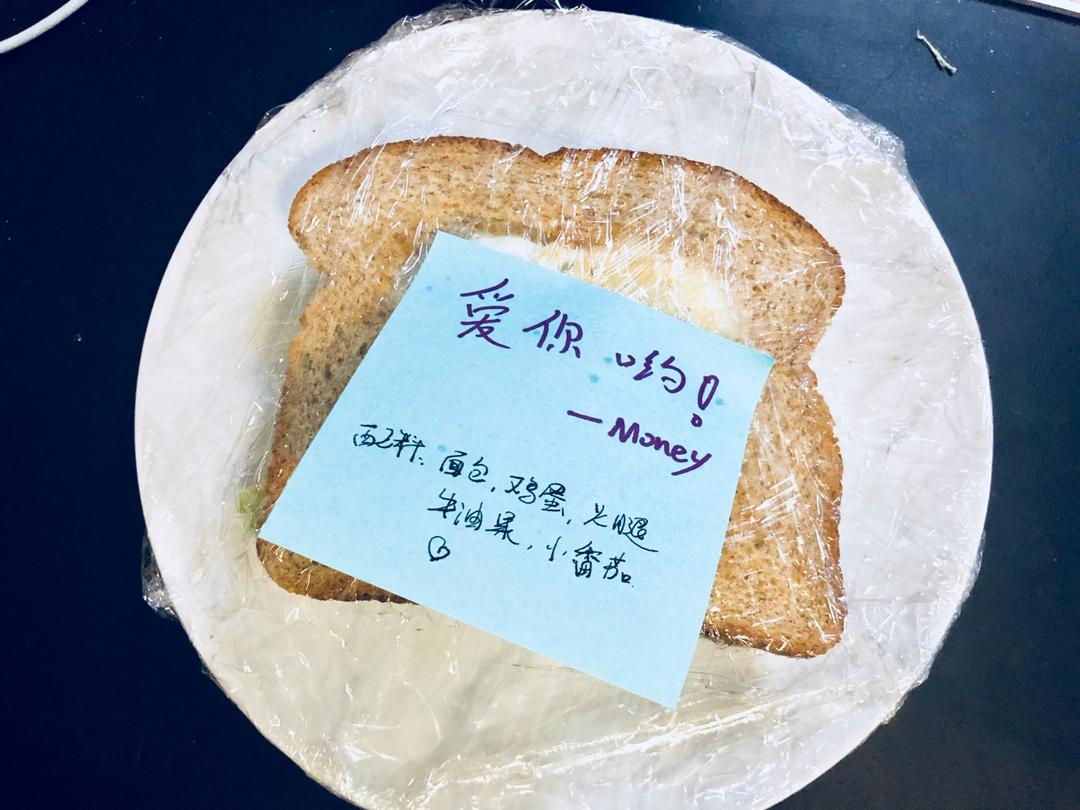 爱你哟!
—Money
配料:面包,鸡蛋,火腿
牛油果,小番茄